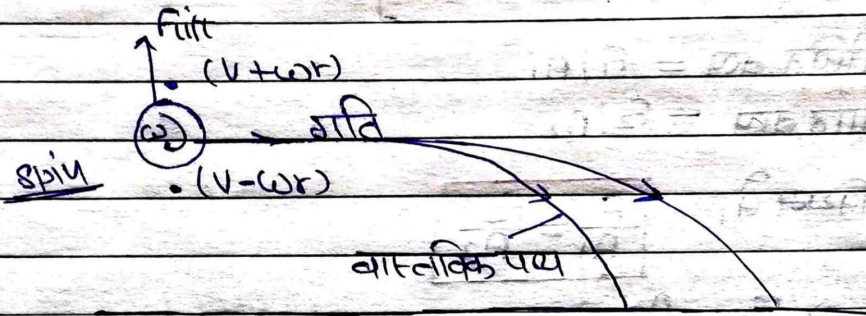 (V+ωr)
ω
गति
spin
(V-ωr)
वास्तविक पथ